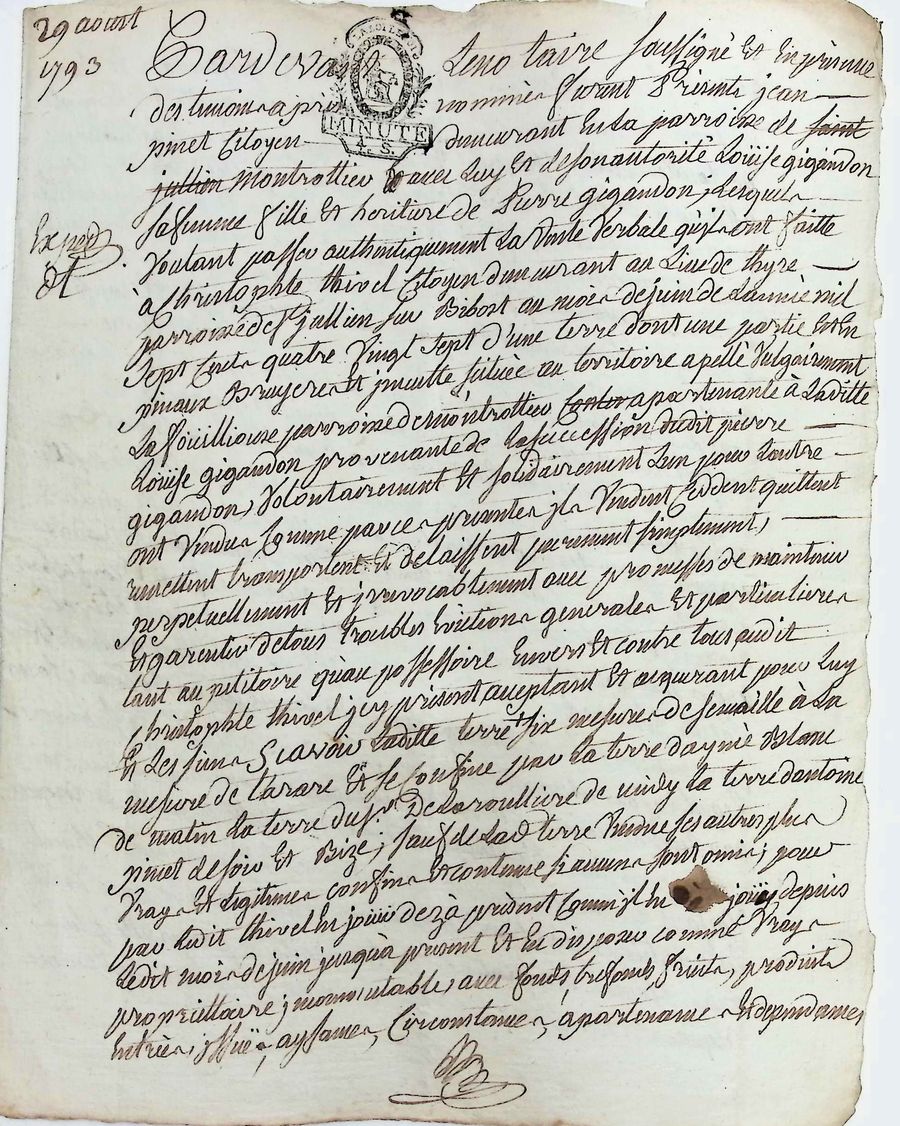 29 aoust
1793
Pardevant Le notaire soussigné Et En presence
des temoins apres nommés furent Presents jean
pinet Citoyen demeurant En La parroisse de saint
jullien Montrottier avec Luy Et de son autorité Loüise gigandon
sa femme fille Et heritiere de Pierre gigandon; Lesquels
Exped
dt
Voulant passer authentiquement La Vente Verbale qu'ils ont faitte
à Christophle thivel Citoyen demeurant au Lieu de thyre
parroisse de St jullien sur Bibost au mois de juin de L'année mil
Sept Cents quatre Vingt Sept d'une terre dont une partie Est En
pinaux Bruyeres Et jnculte sitüée au territoire apellé Vulgairement
La fouilliouse parroisse de montrottier apartenante à Laditte
Loüise gigandon provenante de La succession dudit pierre
gigandon, Volontairement Et solidairement L'un pour L'autre
ont Vendu Comme par ces presentes ils Vendent Cèddent quittent
remettent transportent Et delaissent purement simplement,
perpetuellement Et jrrevocablement avec promesses de maintenir
Et garentir de tous troubles Evictions generales Et particulieres
tant au petitoire qu'au possessoire Envers Et contre tous audit
Christophle thivel jcy present acceptant Et acquerant pour Luy
Et Les siens Scavoir Laditte terre six mesures de semaille à La
mesure de tarare Et se Confine par La terre d'aymé Blanc
de matin La terre du sr. De La roulliere de midy La terre d'antoine
pinet de soir Et Bize; sauf de Lad. terre Vendue ses autres plus
Vrays Et Legitimes confins Et contenue si aucuns sont omis; pour
par Ledit thivel En joüir dezà present Comme jl En joüy depuis
Ledit mois de juin jusqu'à present Et En disposer comme Vray
proprietaire jncommutable, avec fonds, trefonds, fruits, produits
Entrées, jssües, aysances, Circonstances, apartenances Et dependances
MINUTE
4. S.